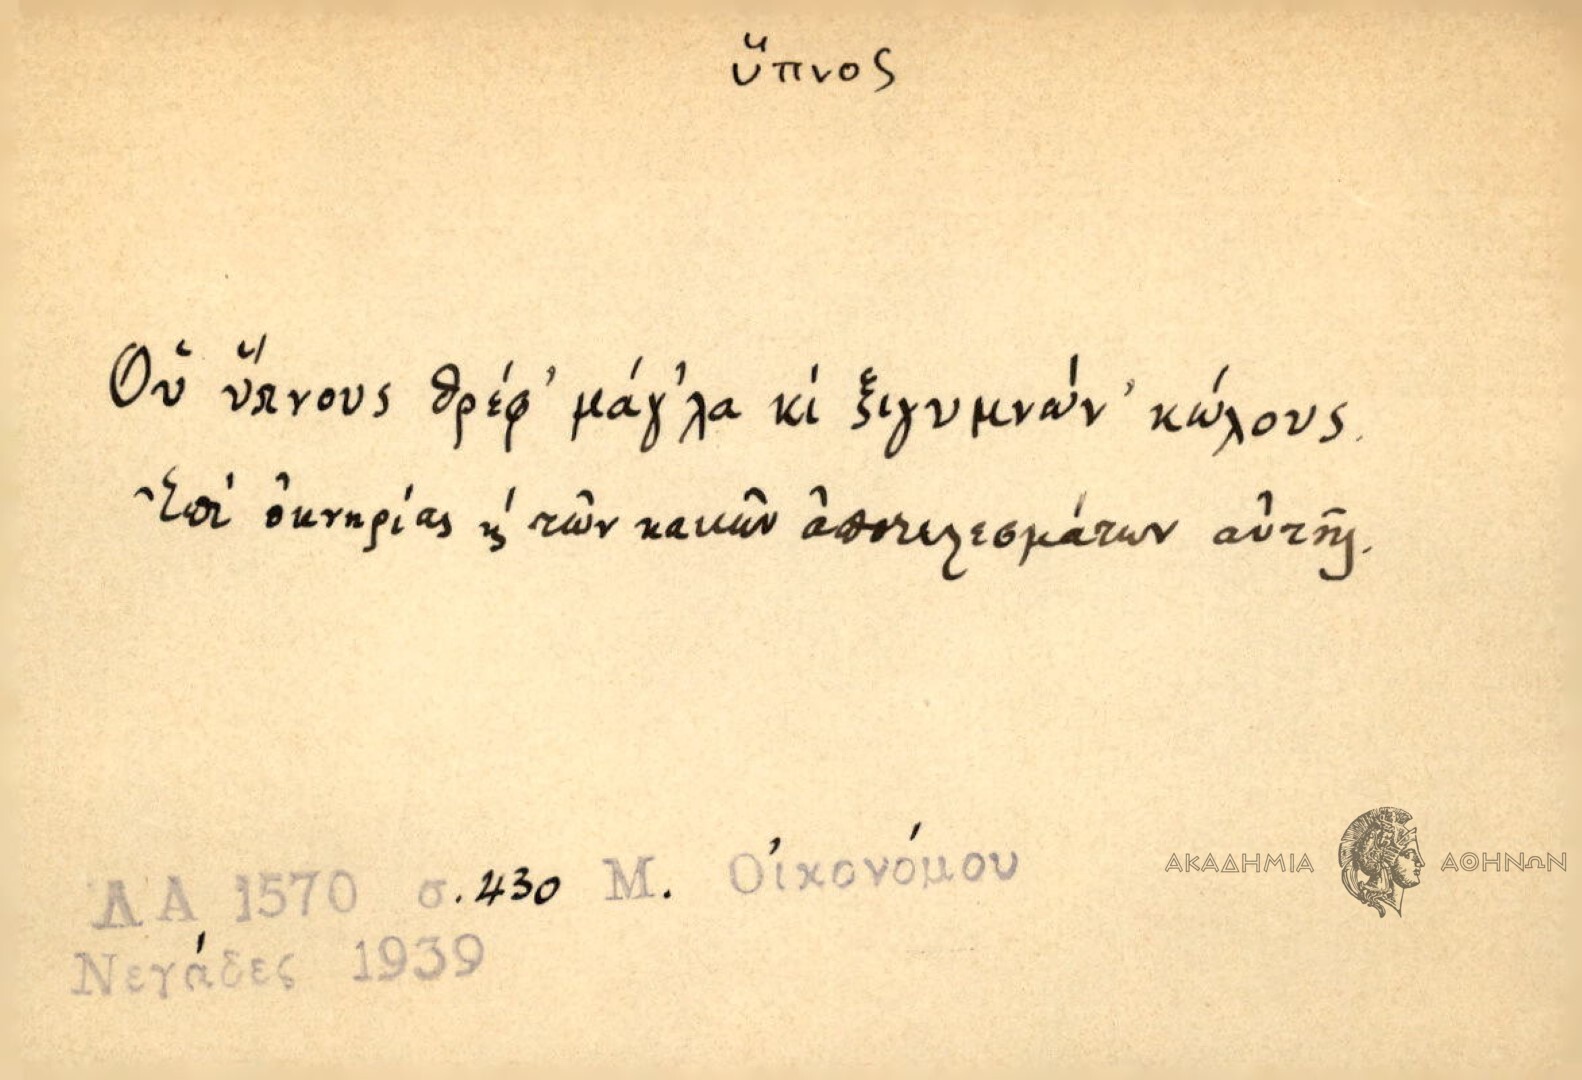 ὕπνος
Οὑ ὕπνους θρέφ' μάγ'λα κὶ ξιγυμνών' κώλους.
Ἐπὶ ὀκνηρίας κ' τῶν κακῶν ἀποτελεσμάτων αὐτῆς.
ΛΑ 1570 σ. 430 Μ. Οἰκονόμου
Νεγάδες 1939
ΑΚΑΔΗΜΙΑ ΑΘΗΝΩΝ